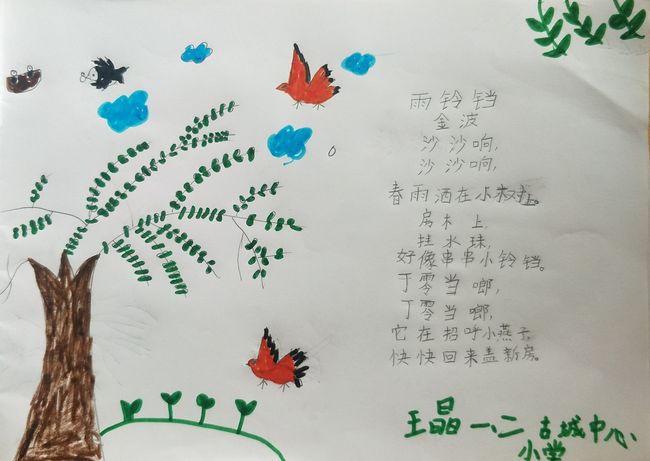 雨铃铛
金波
沙沙响,
沙沙响,
春雨洒在小上。
房木上,
挂水珠,
好像串串小铃铛。
丁零当啷,
丁零当啷,
它在招呼小燕子,
快快回来盖新房。
王晶 一、二 古城中心
小学